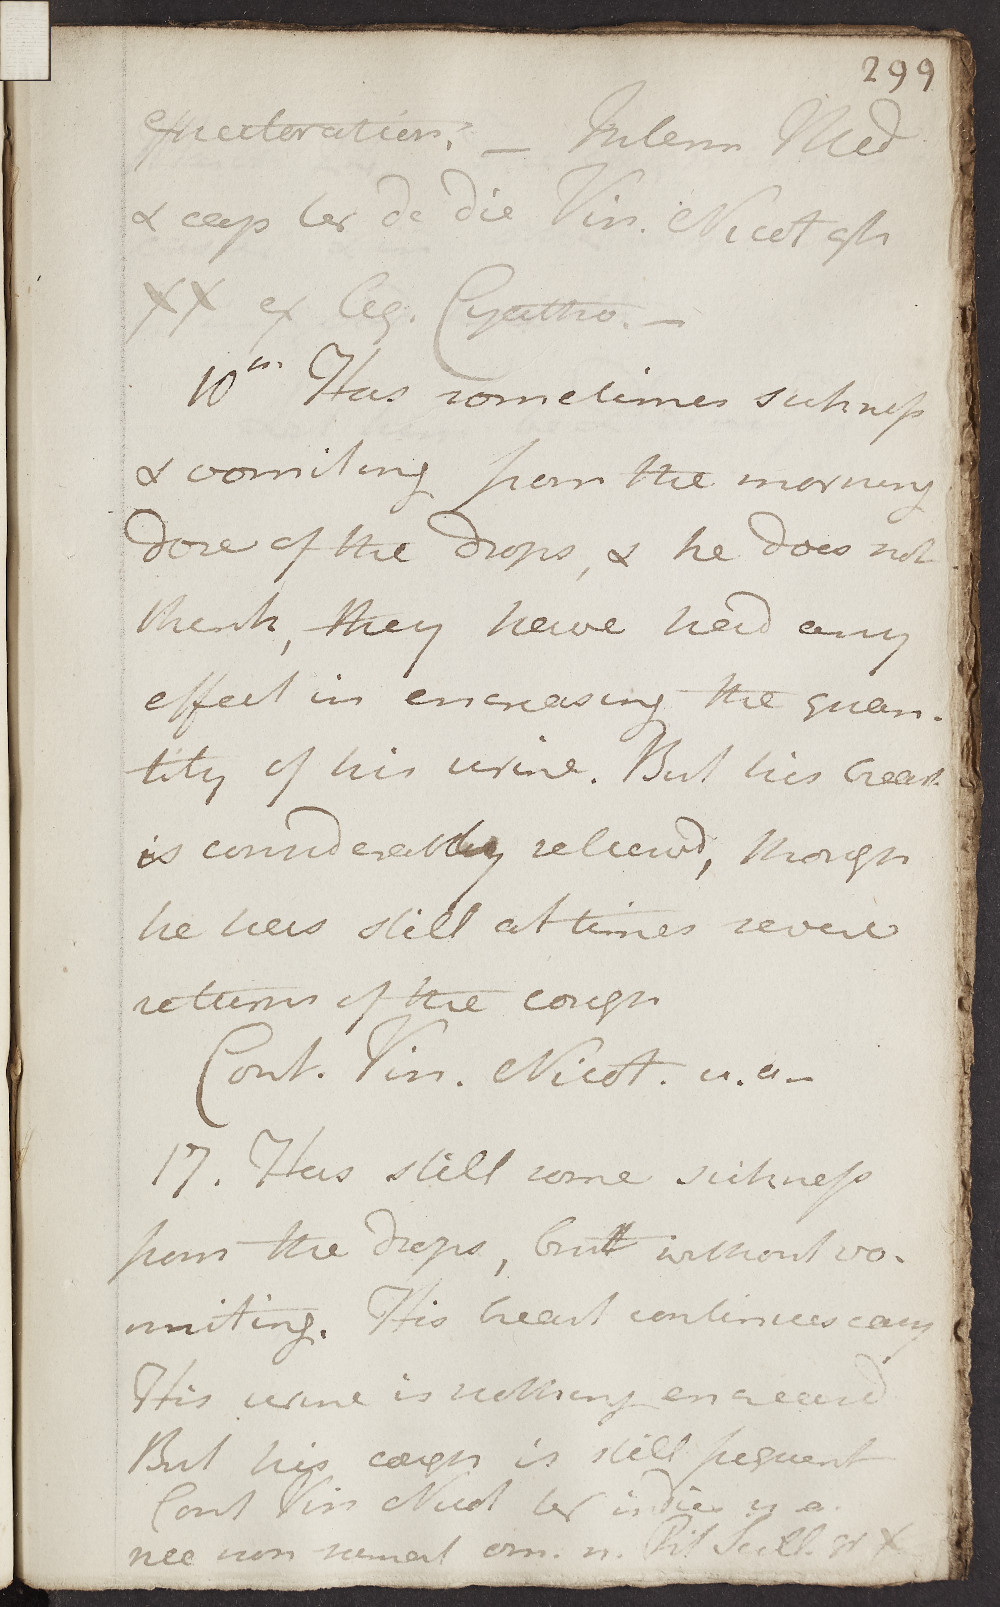 299
expectoration. — Interm Med
& cap ter de die Vin. Nicot gtt
XX ex Aq. Cyatho. —
10th Has sometimes sickness
& vomiting from the morning
dose of the drops, & he does not
think, they have had any
effect in encreasing the quan-
tity of his urine. But his breast
is considerably relieved, though
he has still at times severe
returns of the cough
Cont. Vin. Nicot. u.a—
17. Has still some sickness
from the drops, but without vo-
miting. His breast continues easy
His urine is nothing encreased
But his cough is still frequent
Cont Vin Nicot ter indies u a.
nec non sumat om. n. Pil Scill. gr X